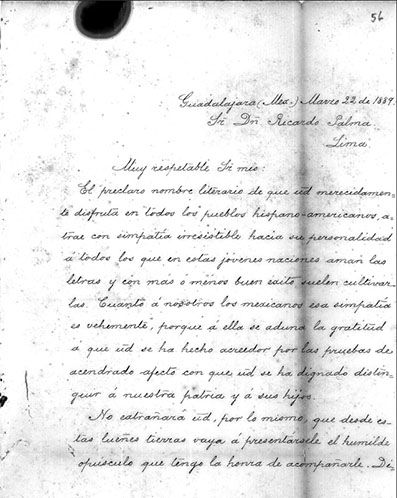 56
Guadalajara (Mex.) Marzo 22 de 1889.
Sr. Dn. Ricardo Palma.
Lima.
Muy respetable Sr. mio:
El preclaro nombre literario de que ud merecidamen-
te disfruta en todos los pueblos hispano-americanos, a-
trae con simpatía irresistible hacia su personalidad
á todos los que en estas jóvenes naciones aman las
letras y con mas o menos buen exito suelen cultivar-
las. Cuanto á nosotros los mexicanos esa simpatía
es vehemente, porque á ella se aduna la gratitud
á que ud se ha hecho acreedor por las pruebas de
acendrado afecto con que ud se ha dignado distin-
guir á nuestra patria y a sus hijos.
No extrañará ud, por lo mismo, que desde es-
tas lueñes tierras vaya á presentársele el humilde
opúsculo que tengo la honra de acompañarle. Di-